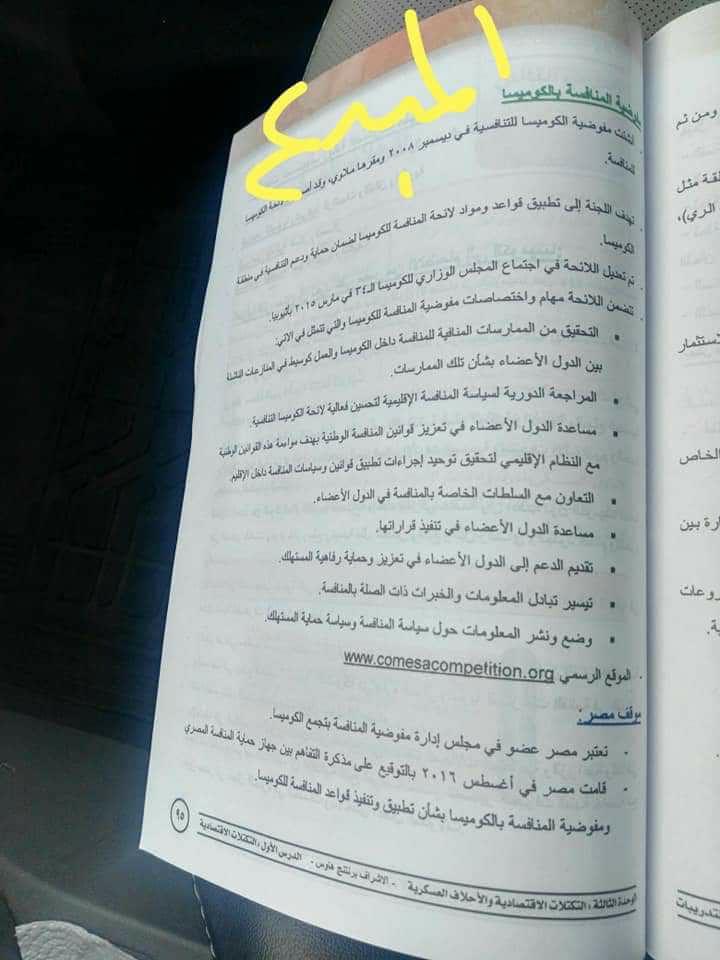 المبدع
مفوضية المنافسة بالكوميسا
أنشئت مفوضية الكوميسا للتنافسية في ديسمبر ٢٠٠٨ ومقرها ملاوي، ولقد لائحة الكوميسا
للمنافسة.
تهدف اللجنة إلى تطبيق قواعد ومواد لائحة المنافسة للكوميسا لضمان حماية ودعم التنافسية في منطقة
الكوميسا.
تم تعديل اللائحة في اجتماع المجلس الوزاري للكوميسا الـ٣٤ في مارس ٢٠١٥ بأثيوبيا.
تتضمن اللائحة مهام واختصاصات مفوضية المنافسة للكوميسا والتي تتمثل في الآتي:
▪ التحقيق من الممارسات المنافية للمنافسة داخل الكوميسا والعمل كوسيط في المنازعات الناشئة
بين الدول الأعضاء بشأن تلك الممارسات.
▪ المراجعة الدورية لسياسة المنافسة الإقليمية لتحسين فعالية لائحة الكوميسا التنافسية.
▪ مساعدة الدول الأعضاء في تعزيز قوانين المنافسة الوطنية بهدف مواءمة هذه القوانين الوطنية
مع النظام الإقليمي لتحقيق توحيد إجراءات تطبيق قوانين وسياسات المنافسة داخل الإقليم.
▪ التعاون مع السلطات الخاصة بالمنافسة في الدول الأعضاء.
▪ مساعدة الدول الأعضاء في تنفيذ قراراتها.
▪ تقديم الدعم إلى الدول الأعضاء في تعزيز وحماية رفاهية المستهلك.
▪ تيسير تبادل المعلومات والخبرات ذات الصلة بالمنافسة.
▪ وضع ونشر المعلومات حول سياسة المنافسة وسياسة حماية المستهلك.
الموقع الرسمي www.comesacompetition.org
موقف مصر:
- تعتبر مصر عضو في مجلس إدارة مفوضية المنافسة بتجمع الكوميسا.
- قامت مصر في أغسطس ٢٠١٦ بالتوقيع على مذكرة التفاهم بين جهاز حماية المنافسة المصري
ومفوضية المنافسة بالكوميسا بشأن تطبيق وتنفيذ قواعد المنافسة للكوميسا.
الوحدة الثالثة : التكتلات الاقتصادية والأحلاف العسكرية - الاشراف برنتنج هاوس - الدرس الأول : التكتلات الاقتصادية
٩٥
ومن ثم
مثل
الري)،
الخاص
بين